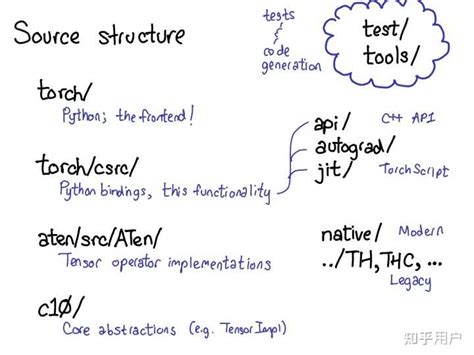 Source structure
tests
&
code
generation
test/
tools/
torch/
Python; the frontend!
torch/csrc/
Python bindings, this functionality
api/ C++ API
autograd/
jit/ TorchScript
aten/src/ATen/
Tensor operator implementations
native/ Modern
../TH, THC, ...
Legacy
c10/
Core abstractions (e.g. TensorImpl)
知乎用户